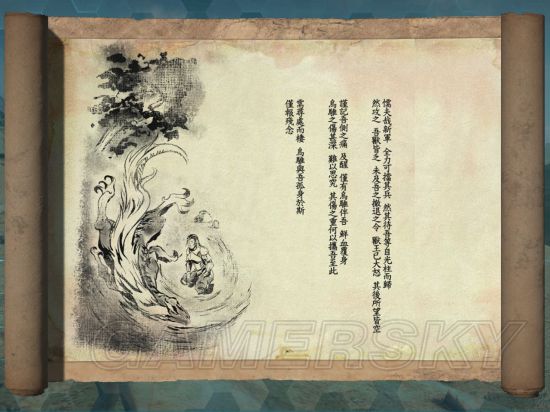 懦夫哉新軍 全力可擋其兵 然其待吾等自光柱而歸
然攻之 吾獸皆亡 未及吾之撤退之令 獸王已大怒 其後所望皆空
謹記吾側之痛 及醒 僅有烏騅伴吾 鮮血覆身
烏騅之傷甚深 雖以思究 其傷之重何以攜吾至此
需尋處而棲 烏騅與吾孤身於斯
僅報殘念
GAMERSKY